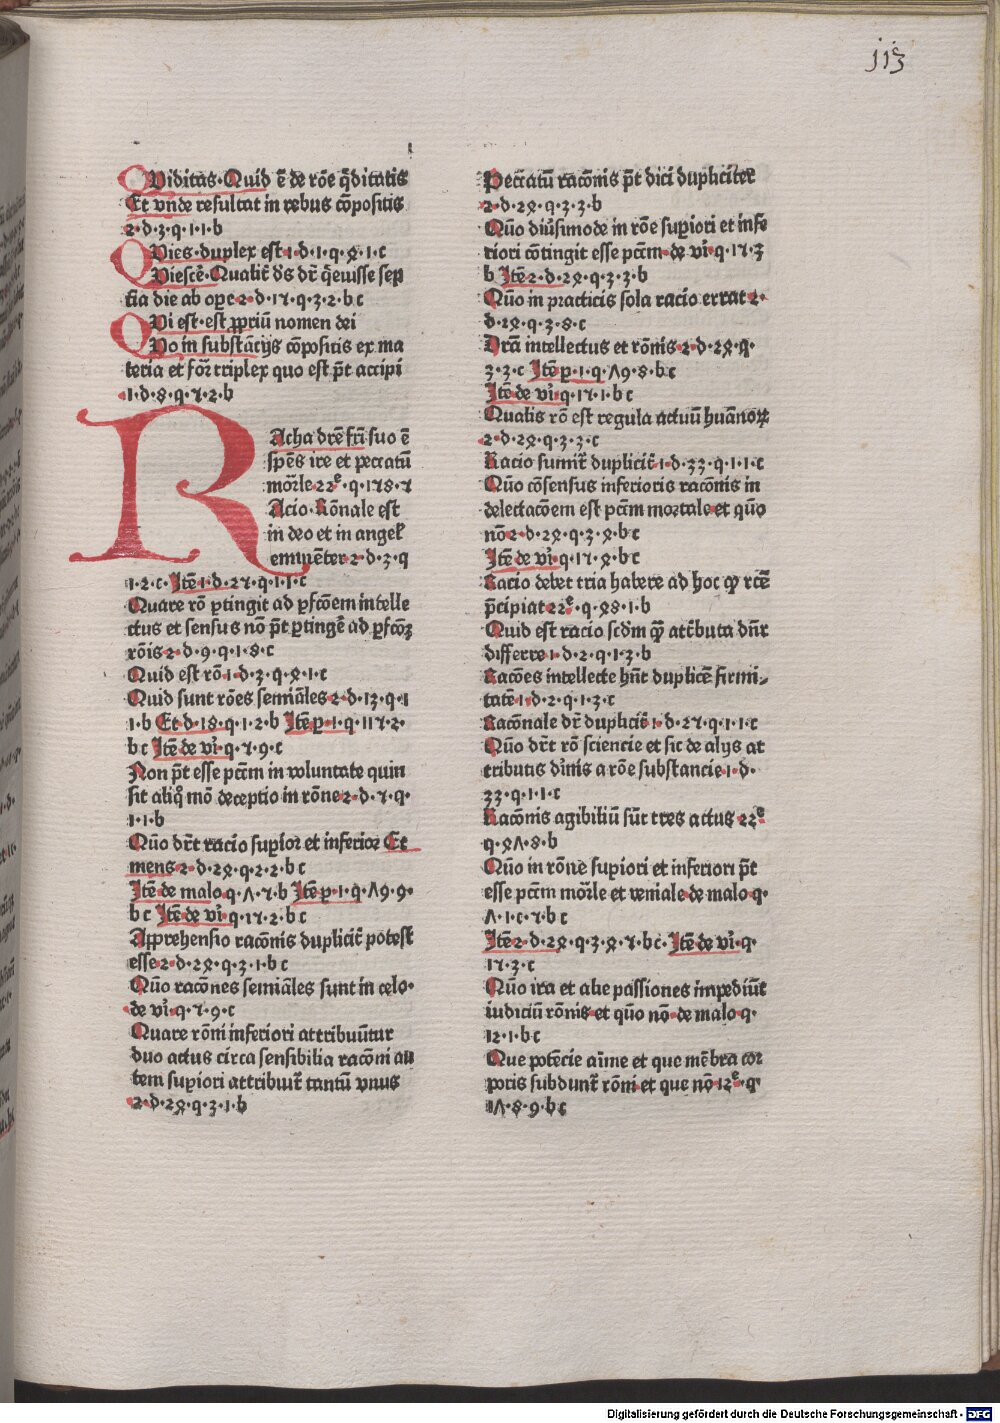 113
QViditas·Quid ē de rōe q̄ditatis
Et vnde resultat in rebus cōpositis
2·d·3·q·1·1·b
QVies·duplex est·1·d·1·q·ꝝ·1·c
QViescē·Qualit̄ d̄s dr̄ q̄euisse sep
tīa die ab oꝑe·2·d·17·q·3·2·b c
QVi est·est ꝓpriū nomen dei
QVo in substācijs cōpositis ex ma
teria et for̄ triplex quo est p̄t accipi
·1·d·8·q·7·2·b
RAcha dr̄e fr̄i suo ē
sp̄ēs ire et peccatū
mor̄le 22ͤ·q·178·7
RAcio·Rōnale est
in deo et in angel̄
eminēter·2·d·3·q
·1·2·c·Jtē·1·d·27·q·1·1·c
Quare rō ꝑtingit ad ꝑfcōem intelle
ctus et sensus nō p̄t ꝑtingē ad ꝑfcōꝫ
rōis·2·d·9·q·1·8·c
Quid est rō·1·d·3·q·ꝝ·1·c
Quid sunt rōes semiāles·2·d·13·q·1
1·b Et·d·18·q·1·2·b Jtē p̄·1·q·117·2·
b c Jtē de vi·q·7·9·c
Non p̄t esse pctm̄ in voluntate quin
sit aliq̊ mō deceptio in rōne·2·d·7·q·
1·1·b
Quō dr̄t racio suꝑior et inferior Et
mens·2·d·2ꝝ·q·2·2·b c
Jtē de malo q·Λ·7·b Jtē p̄·1·q·Λ9·9·
b c Jtē de vi·q·17·2·b c
Apprehensio racōnis duplicit̄ potest
esse·2·d·2ꝝ·q·3·1·b c
Quō racōnes semiāles sunt in celo·
de vi·q·7·9·c
Quare rōni inferiori attribuūtur
duo actus circa sensibilia racōni au
tem suꝑiori attribuit̄ tantū vnus
2·d·2ꝝ·q·3·1·b
Peccatū racōnis p̄t dici dupliciter
2·d·2ꝝ·q·3·3·b
Quō diūsimode in rōe suꝑiori et infe
riori cōtingit esse pctm̄·de vi·q·17·3
b Jtē 2·d·2ꝝ·q·3·3·b
Quō in practicis sola racio errat 2·
d·2ꝝ·q·3·8·c
Drā intellectus et rōnis·2·d·2ꝝ·q·
3·3·c Jtē p̄·1·q·Λ9·8·b c
Jtē de vi·q·17·1·b c
Qualis rō est regula actuū huānoꝝ
2·d·2ꝝ·q·3·3·c
Racio sumit̄ duplicit̄·1·d·33·q·1·1·c
Quō cōsensus inferioris racōnis in
delectacōem est pctm̄ mortale et quō
nō·2·d·2ꝝ·q·3·ꝝ·b c
Jtē de vi·q·17·ꝝ·b c
Racio debet tria habere ad hoc ꝙ rc̄ē
p̄cipiat 22ͤ·q·ꝝ8·1·b
Quid est racio scd̄m ꝙ att̄buta dn̄r
differre·1·d·2·q·1·3·b
Racōes intellecte hn̄t duplicē firmi⸗
tatē·1·d·2·q·1·3·c
Racōnale dr̄ duplicit̄·1·d·27·q·1·1·c
Quō dr̄t rō sciencie et sic de alijs at
tributis diuīs a rōe substancie·1·d·
33·q·1·1·c
Racōnis agibiliū sūt tres actus 22ͤ
q·ꝝΛ·8·b
Quō in rōne suꝑiori et inferiori p̄t
esse pctm̄ mor̄le et veniale·de malo q·
Λ·1·c·7·b c
Jtē 2·d·2ꝝ·q·3·ꝝ·7·b c·Jtē de vi·q·
17·3·c
Quō ira et alie passiones impediūt
iudiciū rōnis·et quō nō·de malo q·
12·1·b c
Que potēcie aīme et que mēbra cor
poris subdunt̄ rōni et que nō 12ͤ·q·
1Λ·8·9·b c
Digitalisierung gefördert durch die Deutsche Forschungsgemeinschaft - DFG